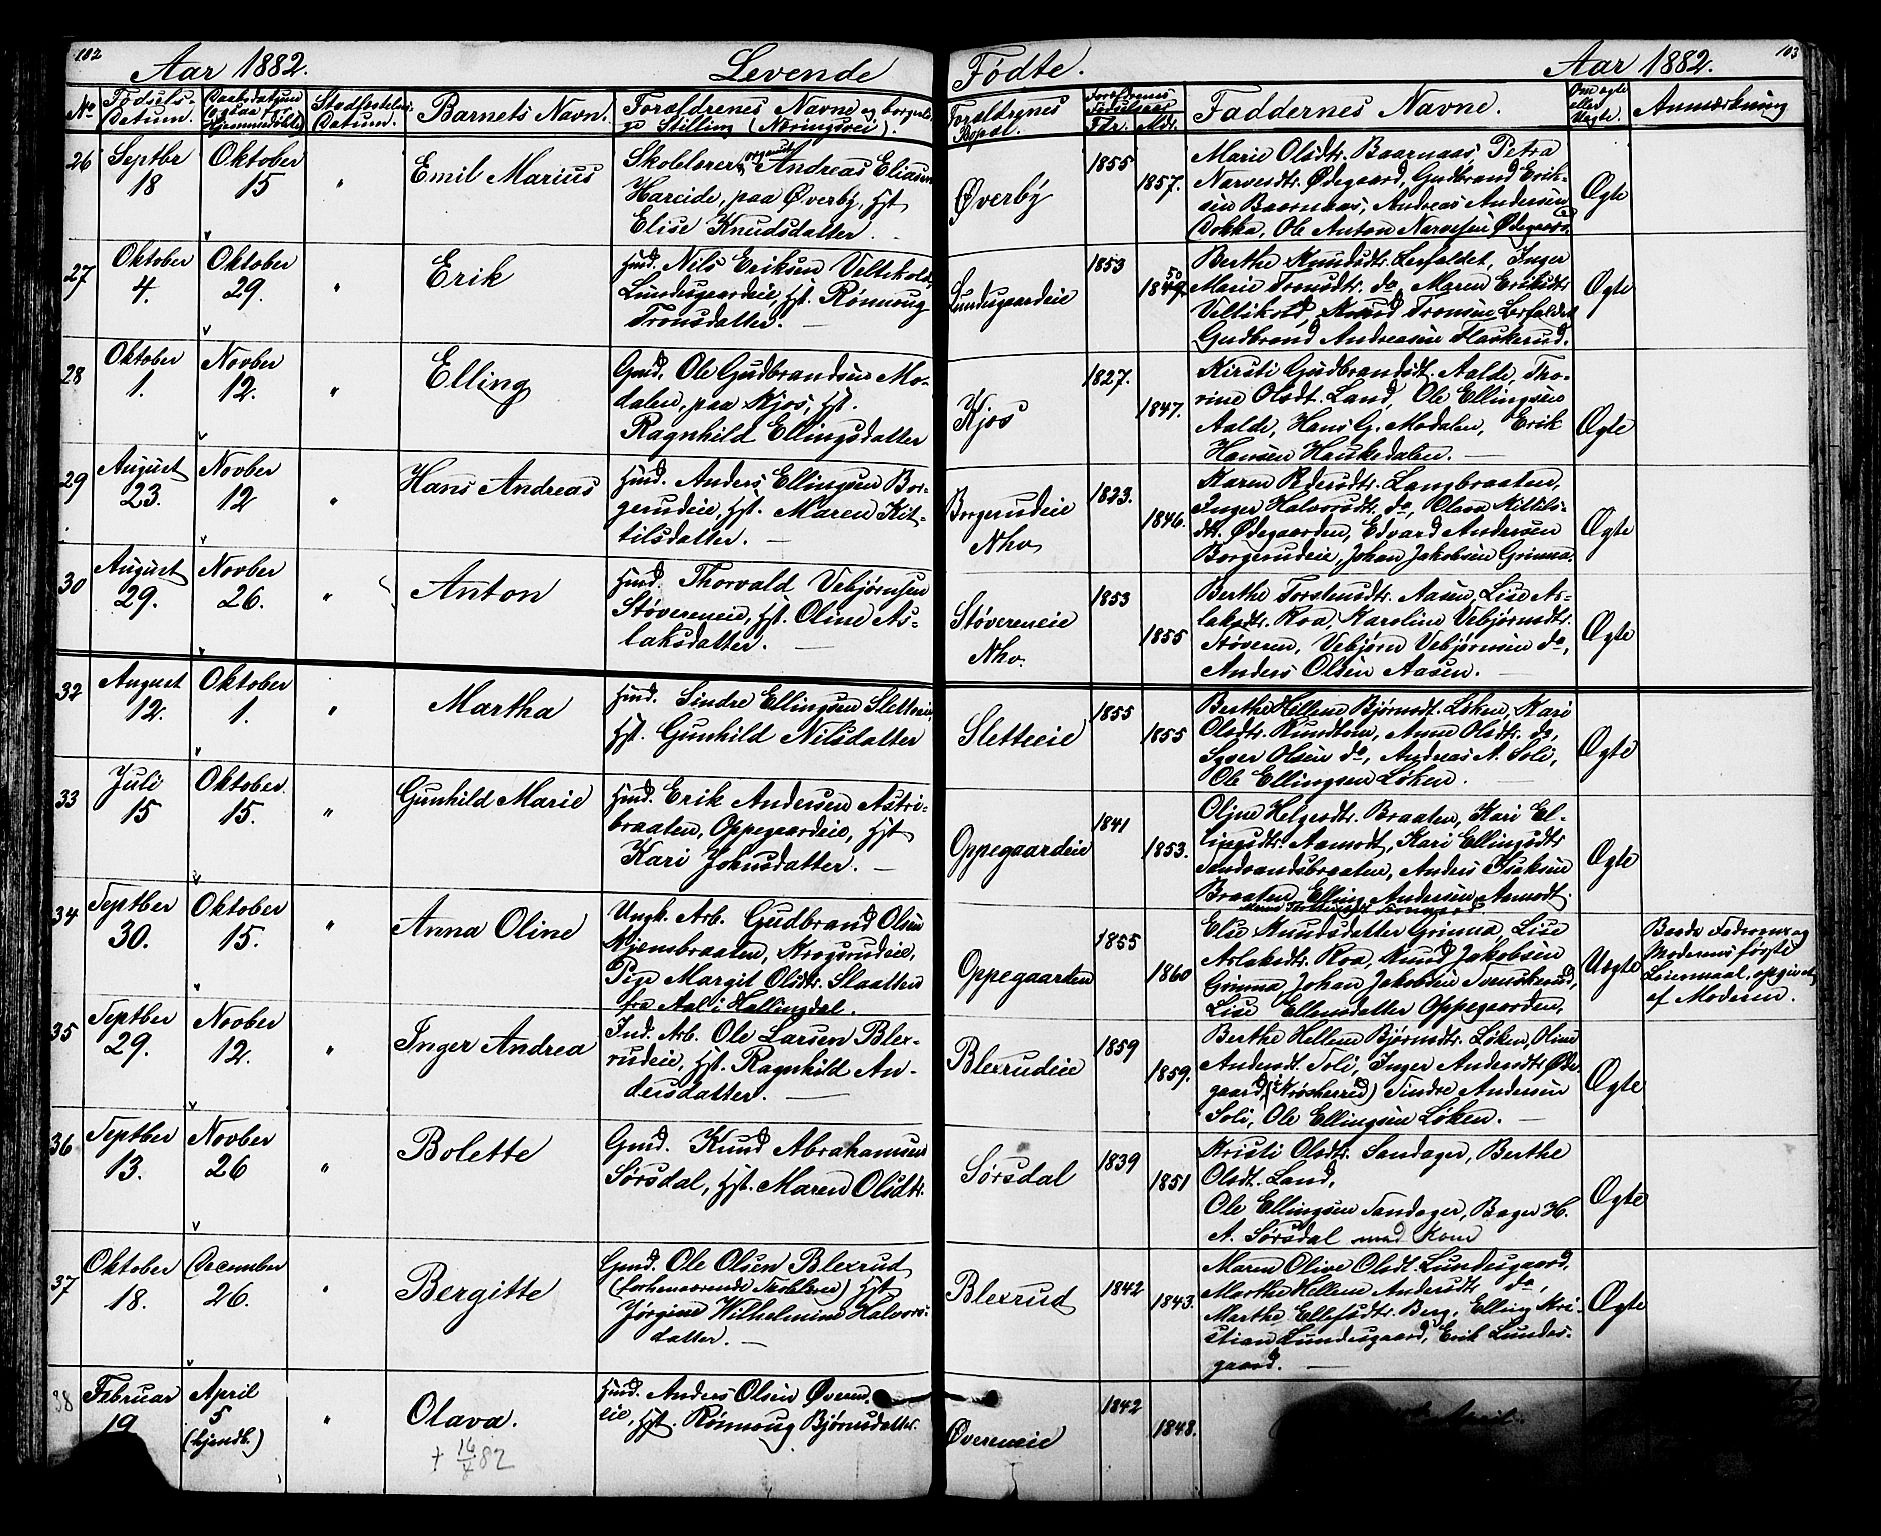 102
Aar 1882.
Levende
Fødte.
Aar 1882.
103
No
Fødsels-
Datum.
Daabsdatum
Hjemmedøbte
Stadfestelses
Datum.
Barnets Navn.
Forældrenes Navne og borgerli-
ge Stilling (Næringsvei).
Forældrenes
Bopæl.
Forældrenes
Fødselsaar
Fdr. Mdr.
Faddernes Navne.
Om ægte
eller
Uægte.
Anmærkning
26
Septbr
18
Oktober
15
"
Emil Marius
Skolelærer, Andreas Eliasen
Hareide, paa Øverby, Hst
Elise Knudsdatter.
Øverby
1855
1857.
Marie Olsdtr. Baarnaas, Petra
Narvesdtr. Ødegaard, Gudbrand Erik-
sen Baarnaas, Andreas Andersen
Dokka, Ole Anton Narvesen Ødegaard.
Ægte
27
Oktober
4.
Oktober
29.
"
Erik
Hmd. Nils Eriksen Veltikold,
Lundesgaardeie, Hst. Rønnoug
Tronsdatter. —
Lundesgaardeie
1853
50
1849.
Berthe Knudsdtr. Lerfaldet, Inger
Marie Tronsdtr. do, Maren Eriksdtr
Veltikold, Knud Tronsen Lerfaldet
Gudbrand Andreasen Haverud.
Ægte
28
Oktober
1.
Novber
12.
"
Elling
Gmd. Ole Gudbrandsen Mo-
dalen, paa Kjos, Hst.
Ragnhild Ellingsdatter
Kjos
1827.
1847.
Kirsti Gudbrandsdt. Aalde, Tho-
rine Olsdt. Land, Ole Ellingsen
Aalde, Hans G. Modalen, Erik
Hansen Haukedalen. —
Ægte
29
August
23.
Novber
12
"
Hans Andreas
Hmd. Anders Ellingsen Bor-
gerudeie, Hst. Maren Kit-
tilsdatter. —
Borgerudeie
Nho
1823.
1846.
Karen Pedersdtr. Langbraaten,
Inger Halvorsdtr. do, Olava Kittils-
dtr. Ødegaarden, Edvard Andersen
Borgerudeie, Johan Jakobsen Grimna.
Ægte
30
August
29.
Novber
26.
"
Anton
Hmd. Thorvald Vebjørnsen
Støvereneie, Hst. Oline As-
laksdatter. —
Støvereneie
Nho.
1853
1855
Berthe Torstensdtr. Aasen, Lise As-
laksdtr. Roa, Karoline Vebjørnsdtr.
Støveren, Vebjørn Vebjørnsen do,
Anders Olsen Aasen. —
Ægte
32
August
12.
Oktober
1.
"
Martha
Hmd. Sindre Ellingsen Sletteeie,
Hst. Gunhild Nilsdatter
Sletteeie
1855
1855
Berthe Hellene Bjørnsdt. Løken, Kari
Olsdtr. Rundtom, Anne Olsdtr. do,
Syver Olsen do, Andreas A. Soli,
Ole Ellingsen Løken. —
Ægte
33
Juli
15
Oktober
15.
"
Gunhild Marie
Hmd. Erik Andersen Astri-
braaten, Oppegaardeie, Hst
Kari Johnsdatter. —
Oppegaardeie
1841
1853.
Oline Helgesdtr. Braaten, Kari El-
lingsdtr. Aamodt, Kari Ellingsdtr
Sandvandsbraaten, Anders Isaksen
Braaten, Elling Andersen Aamodt.
Ægte
34
Septber
30.
Oktober
15.
"
Anna Oline
Ungk. Arb. Gudbrand Olsen
Mjensbraaten, Krogsrudeie,
Pige Margit Olsdtr. Slaatten
fra Aal i Hallingdal.
Oppegaarden
1855
1860
Else Knudsdatter Grimna, Lise
Aslaksdtr. Roa, Knud Jakobsen
Grimna, Johan Jakobsen Svensbraad,
Lise Ellensdatter Oppegaarden,
Uægte
Baade Faderens og
Moderens første
Leiermaal, opgivet
af Moderen.
35
Septber
29.
Novber
12.
"
Inger Andrea
Ind. Arb. Ole Larsen Blex-
rudeie, Hst. Ragnhild An-
dersdatter. —
Blexrudeie
1859
1859.
Berthe Hellene Bjørnsdtr. Løken, Oline
Andersdt. Soli, Inger Andersdtr. Øde-
gaard (i Krødsherred) Sindre Andersen
Soli, Ole Ellingsen Løken. —
Ægte
36
Septber
13.
Novber
26
"
Bolette
Gmd. Knud Abrahamsen
Sørsdal, Hst. Maren Olsdtr.
Sørsdal
1839
1851
Kristi Olsdtr. Sandager, Berthe
Olsdt. Land,
Ole Ellingsen Sandager, Bager H.
A. Sørsdal med Kone
Ægte
37
Oktober
18.
December
26.
"
Bergitte
Gmd. Ole Olsen Blexrud
(forhenværende Skolelærer) Hst,
Jørgine Wilhelmine Halvors-
datter. —
Blexrud
1842
1843.
Maren Olive Olsdt. Lundesgaard,
Marthe Hellene Andersdt do,
Marthe Ellefsdtr. Berg, Elling Kri-
stian Lundesgaard, Erik Lundes-
gaard. —
Ægte
38
Februar
19
April
5
(hjemdb.)
"
Olava.
+ 16/4 82
Hmd. Anders Olsen Øveren-
eie, Hst. Rønnoug Bjørnsdatter.
Øvereneie
1842
1848.